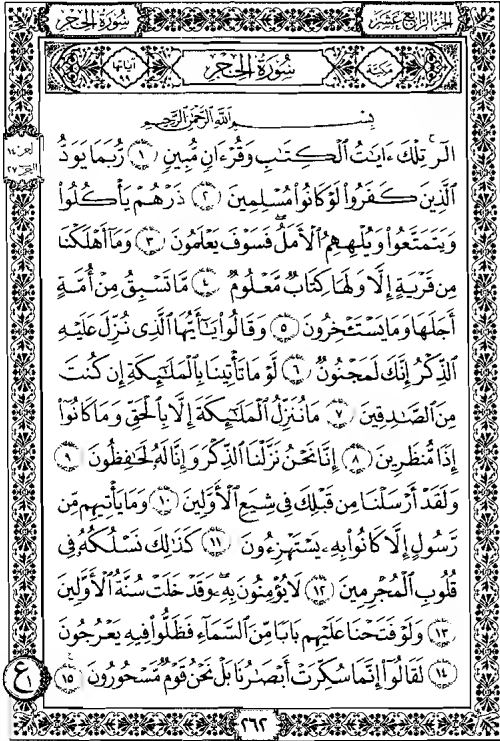 سُورَةُ الحِجْرِ الجُزءُ الرَّابِعَ عَشَرَ
مَكيَّة سُورَةُ الحِجْرِ آيَاتُهَا ٩٩
بِسْمِ اللَّهِ الرَّحْمَٰنِ الرَّحِيمِ
الٓرۚ تِلْكَ ءَايَٰتُ ٱلْكِتَٰبِ وَقُرْءَانٍ مُّبِينٍ ١ رُّبَمَا يَوَدُّ
ٱلَّذِينَ كَفَرُوا۟ لَوْ كَانُوا۟ مُسْلِمِينَ ٢ ذَرْهُمْ يَأْكُلُوا۟
وَيَتَمَتَّعُوا۟ وَيُلْهِهِمُ ٱلْأَمَلُۖ فَسَوْفَ يَعْلَمُونَ ٣ وَمَآ أَهْلَكْنَا
مِن قَرْيَةٍ إِلَّا وَلَهَا كِتَابٌ مَّعْلُومٌ ٤ مَّا تَسْبِقُ مِنْ أُمَّةٍ
أَجَلَهَا وَمَا يَسْتَـْٔخِرُونَ ٥ وَقَالُوا۟ يَٰٓأَيُّهَا ٱلَّذِى نُزِّلَ عَلَيْهِ
ٱلذِّكْرُ إِنَّكَ لَمَجْنُونٌ ٦ لَّوْ مَا تَأْتِينَا بِٱلْمَلَٰٓئِكَةِ إِن كُنتَ
مِنَ ٱلصَّٰدِقِينَ ٧ مَا نُنَزِّلُ ٱلْمَلَٰٓئِكَةَ إِلَّا بِٱلْحَقِّ وَمَا كَانُوٓا۟
إِذًا مُّنظَرِينَ ٨ إِنَّا نَحْنُ نَزَّلْنَا ٱلذِّكْرَ وَإِنَّا لَهُۥ لَحَٰفِظُونَ ٩
وَلَقَدْ أَرْسَلْنَا مِن قَبْلِكَ فِى شِيَعِ ٱلْأَوَّلِينَ ١٠ وَمَا يَأْتِيهِم مِّن
رَّسُولٍ إِلَّا كَانُوا۟ بِهِۦ يَسْتَهْزِءُونَ ١١ كَذَٰلِكَ نَسْلُكُهُۥ فِى
قُلُوبِ ٱلْمُجْرِمِينَ ١٢ لَا يُؤْمِنُونَ بِهِۦۖ وَقَدْ خَلَتْ سُنَّةُ ٱلْأَوَّلِينَ
١٣ وَلَوْ فَتَحْنَا عَلَيْهِم بَابًا مِّنَ ٱلسَّمَآءِ فَظَلُّوا۟ فِيهِ يَعْرُجُونَ
١٤ لَقَالُوٓا۟ إِنَّمَا سُكِّرَتْ أَبْصَٰرُنَا بَلْ نَحْنُ قَوْمٌ مَّسْحُورُونَ ١٥
ع ١
٢٦٢